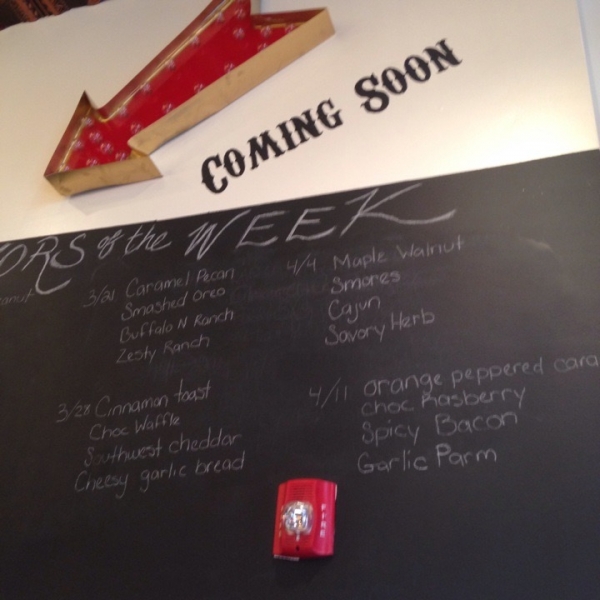 COMING SOON
ORS of the WEEK
3/21 Caramel Pecan
Smashed Oreo
Buffalo N Ranch
Zesty Ranch
4/4 Maple Walnut
Smores
Cajun
Savory Herb
3/28 Cinnamon toast
Choc Waffle
Southwest cheddar
Cheesy garlic bread
4/11 orange peppered cara
choc Rasberry
Spicy Bacon
Garlic Parm
FIRE